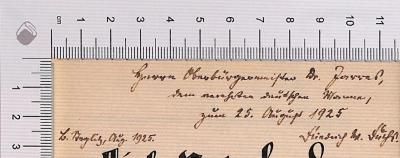 cm 1 2 3 4 5 6 7 8 9 10 11
1
2
3
Herrn Oberbürgermeister Dr. Jarres,
dem verehrten deutschen Manne,
zum 25. August 1925
B. Steglitz, Aug. 1925.
Friedrich W.